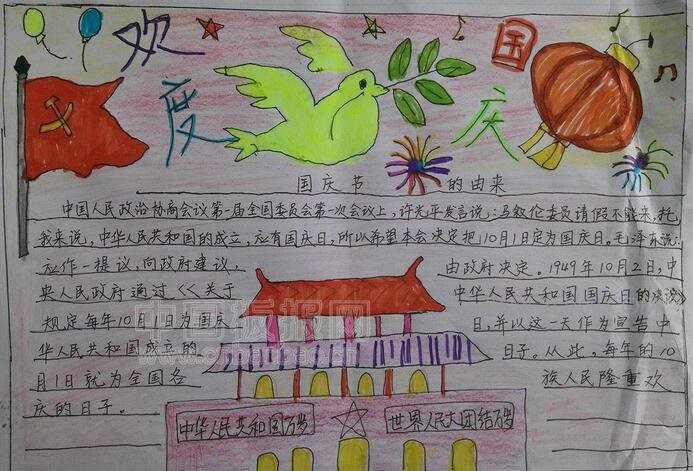 欢度国庆
国庆节的由来
中国人民政治协商会议第一届全国委员会第一次会议上，许光平发言说：马叙伦委员请假不能来，托
我来说，中华人民共和国的成立，应有国庆日，所以希望本会决定把10月1日定为国庆日。毛泽东说：
应作一提议，向政府建议，由政府决定。1949年10月2日，中
央人民政府通过《《关于中华人民共和国国庆日的决议》
规定每年10月1日为国庆日，并以这一天作为宣告中
华人民共和国成立的日子。从此，每年的10
月1日就为全国各族人民隆重欢
庆的日子。
中华人民共和国万岁
世界人民大团结万岁
中国板报网